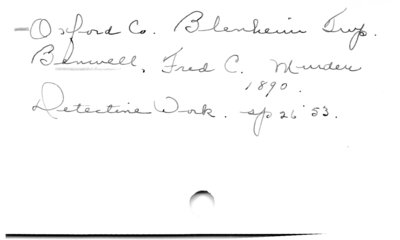 - Oxford Co. Blenheim Twp.
Benwell, Fred C. Murder
1890.
Detective Work. sp 26 '53.